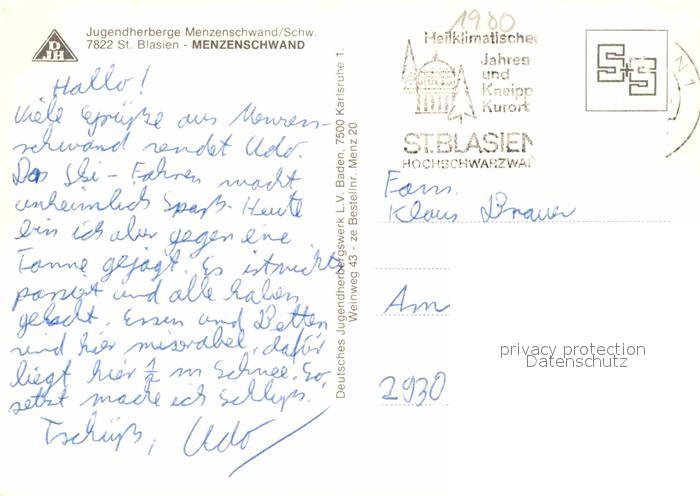 Jugendherberge Menzenschwand/Schw.
7822 St. Blasien - MENZENSCHWAND
Hallo!
Viele Grüße aus Menzen-
schwand sendet Udo.
Das Ski-Fahren macht
unheimlich Spaß. Heute
bin ich aber gegen eine
Tanne gejagt. Es ist nichts
passiert und alle haben
gelacht. Essen und Betten
sind hier miserabel, dafür
liegt hier 1/2 m Schnee. So,
jetzt mache ich Schluß.
Tschüß, Udo
Deutsches Jugendherbergswerk L.V. Baden, 7500 Karlsruhe 1.
Weinweg 43 - ze Bestellnr. Menz 20
1980
Heilklimatischer
Jahres
und
Kneipp
Kurort
ST.BLASIEN
HOCHSCHWARZWAL
S+S
Fam.
Klaus Brauer
Am
2930
privacy protection
Datenschutz